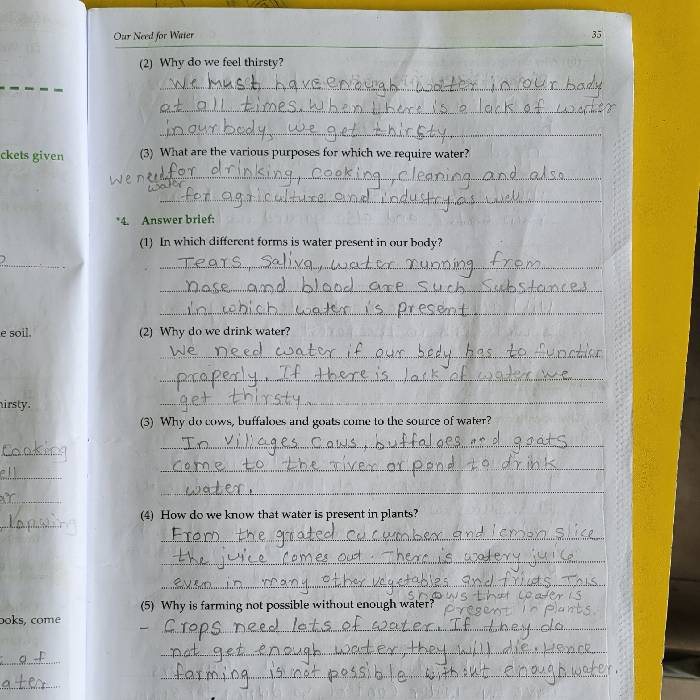 Our Need for Water 35
(2) Why do we feel thirsty?
We must have enough water in our body
at all times. When there is a lack of water
in our body, we get thirsty.
ckets given
(3) What are the various purposes for which we require water?
we need for drinking, cooking, cleaning and also
water
for agriculture and industry as well
*4. Answer brief:
(1) In which different forms is water present in our body?
Tears, saliva, water running from
nose and blood are such substances
in which water is present.
e soil.
(2) Why do we drink water?
We need water if our body has to function
properly. If there is lack of water we
get thirsty.
hirsty.
(3) Why do cows, buffaloes and goats come to the source of water?
In villages cows, buffaloes and goats
cooking
come to the river or pond to drink
ell
water.
ar
(4) How do we know that water is present in plants?
From the grated cucumber and lemon slice
the juice comes out. There is watery juice
even in many other vegetables and fruits. This
shows that water is
(5) Why is farming not possible without enough water?
present in plants.
ooks, come
- Crops need lots of water. If they do
not get enough water, they will die. Hence
of
farming is not possible without enough water.
ater